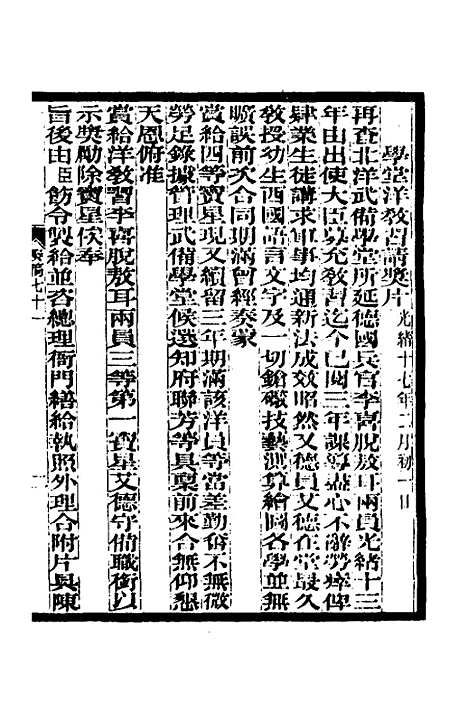 學堂洋教習請獎片光緒十七年二月初一日
再查北洋武備學堂所延德國兵官李喜脫敖耳兩員光緒十三
年由出使大臣募充教習迄今已閱三年課導盡心不辭勞瘁俾
肄業生徒講求軍事均通新法成效照然又德員艾德在堂最久
教授幼生西國語言文字及一切鎗礮技藝測算繪圖各學並無
曠誤前次合同期滿曾經奏蒙
賞給四等寶星現又續留三年期滿該洋員等當差勤奮不無微
勞足錄據管理武備學堂候選知府聯芳等具稟前來合無仰懇
天恩俯准
賞給洋教習李喜脫敖耳兩員三等第一寶星艾德守備職銜以
示獎勵除寶星俟奉
旨後由臣飭令製給並咨總理衙門繕給執照外理合附片具陳
奏稿七十一